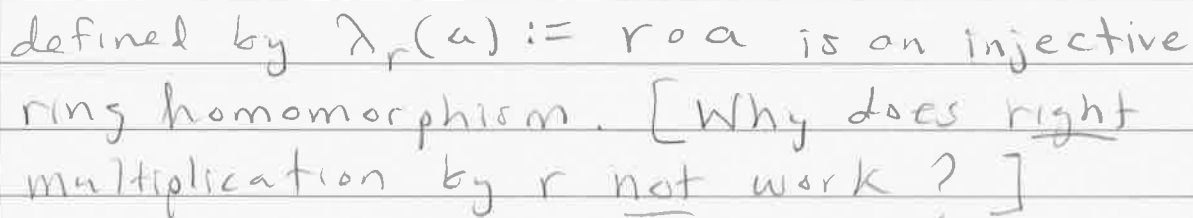 defined by λ_r(a) := r∘a is an injective
ring homomorphism. [Why does right
multiplication by r not work?]